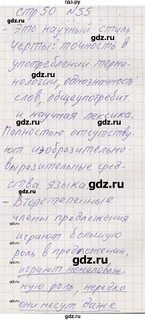 гдз.ру
стр 50 №55
- Это научный стиль
Черты: точность в
употреблении терми-
нологии, однозначность
слов, общеупотребит.
и научная лексика.
Полностью отсутству-
ют изобразительно-
выразительные сред-
ства языка.
- Второстепенные
члены предложения
играют большую
роль в предложении.
играют немаловаж-
ную роль, нередко
они несут даже
gdz.ru